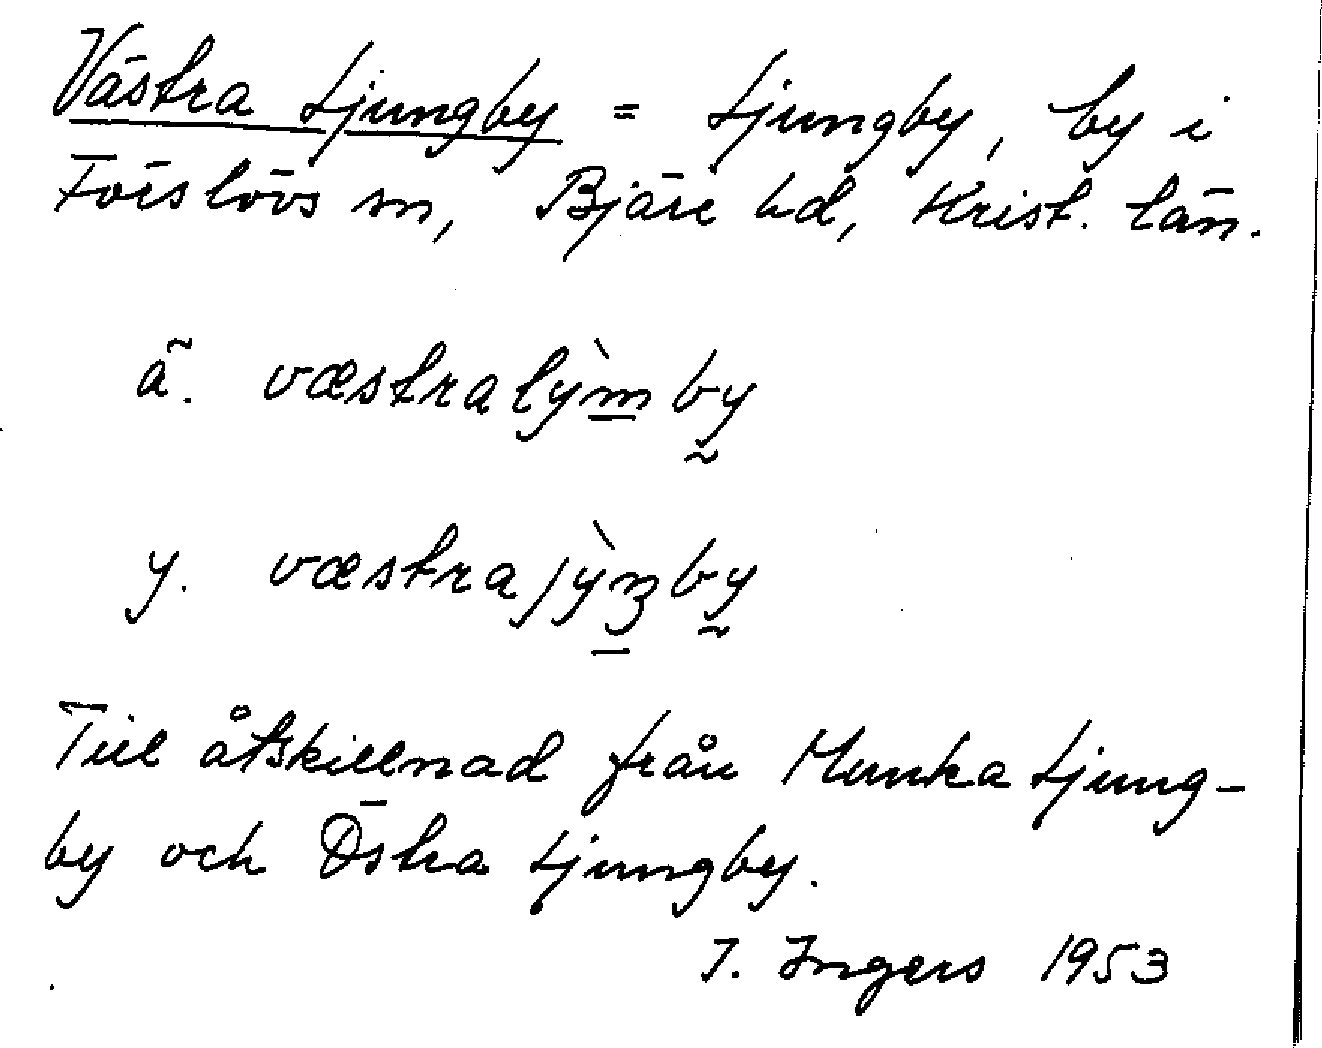 Västra Ljungby = Ljungby, by i
Förslövs sn, Bjäre hd, Krist. län.
ä. væstralỳm̲by̰
y. væstrajỳŋ̲by̰
Till åtskillnad från Munka Ljung-
by och Östra Ljungby.
I. Ingers 1953